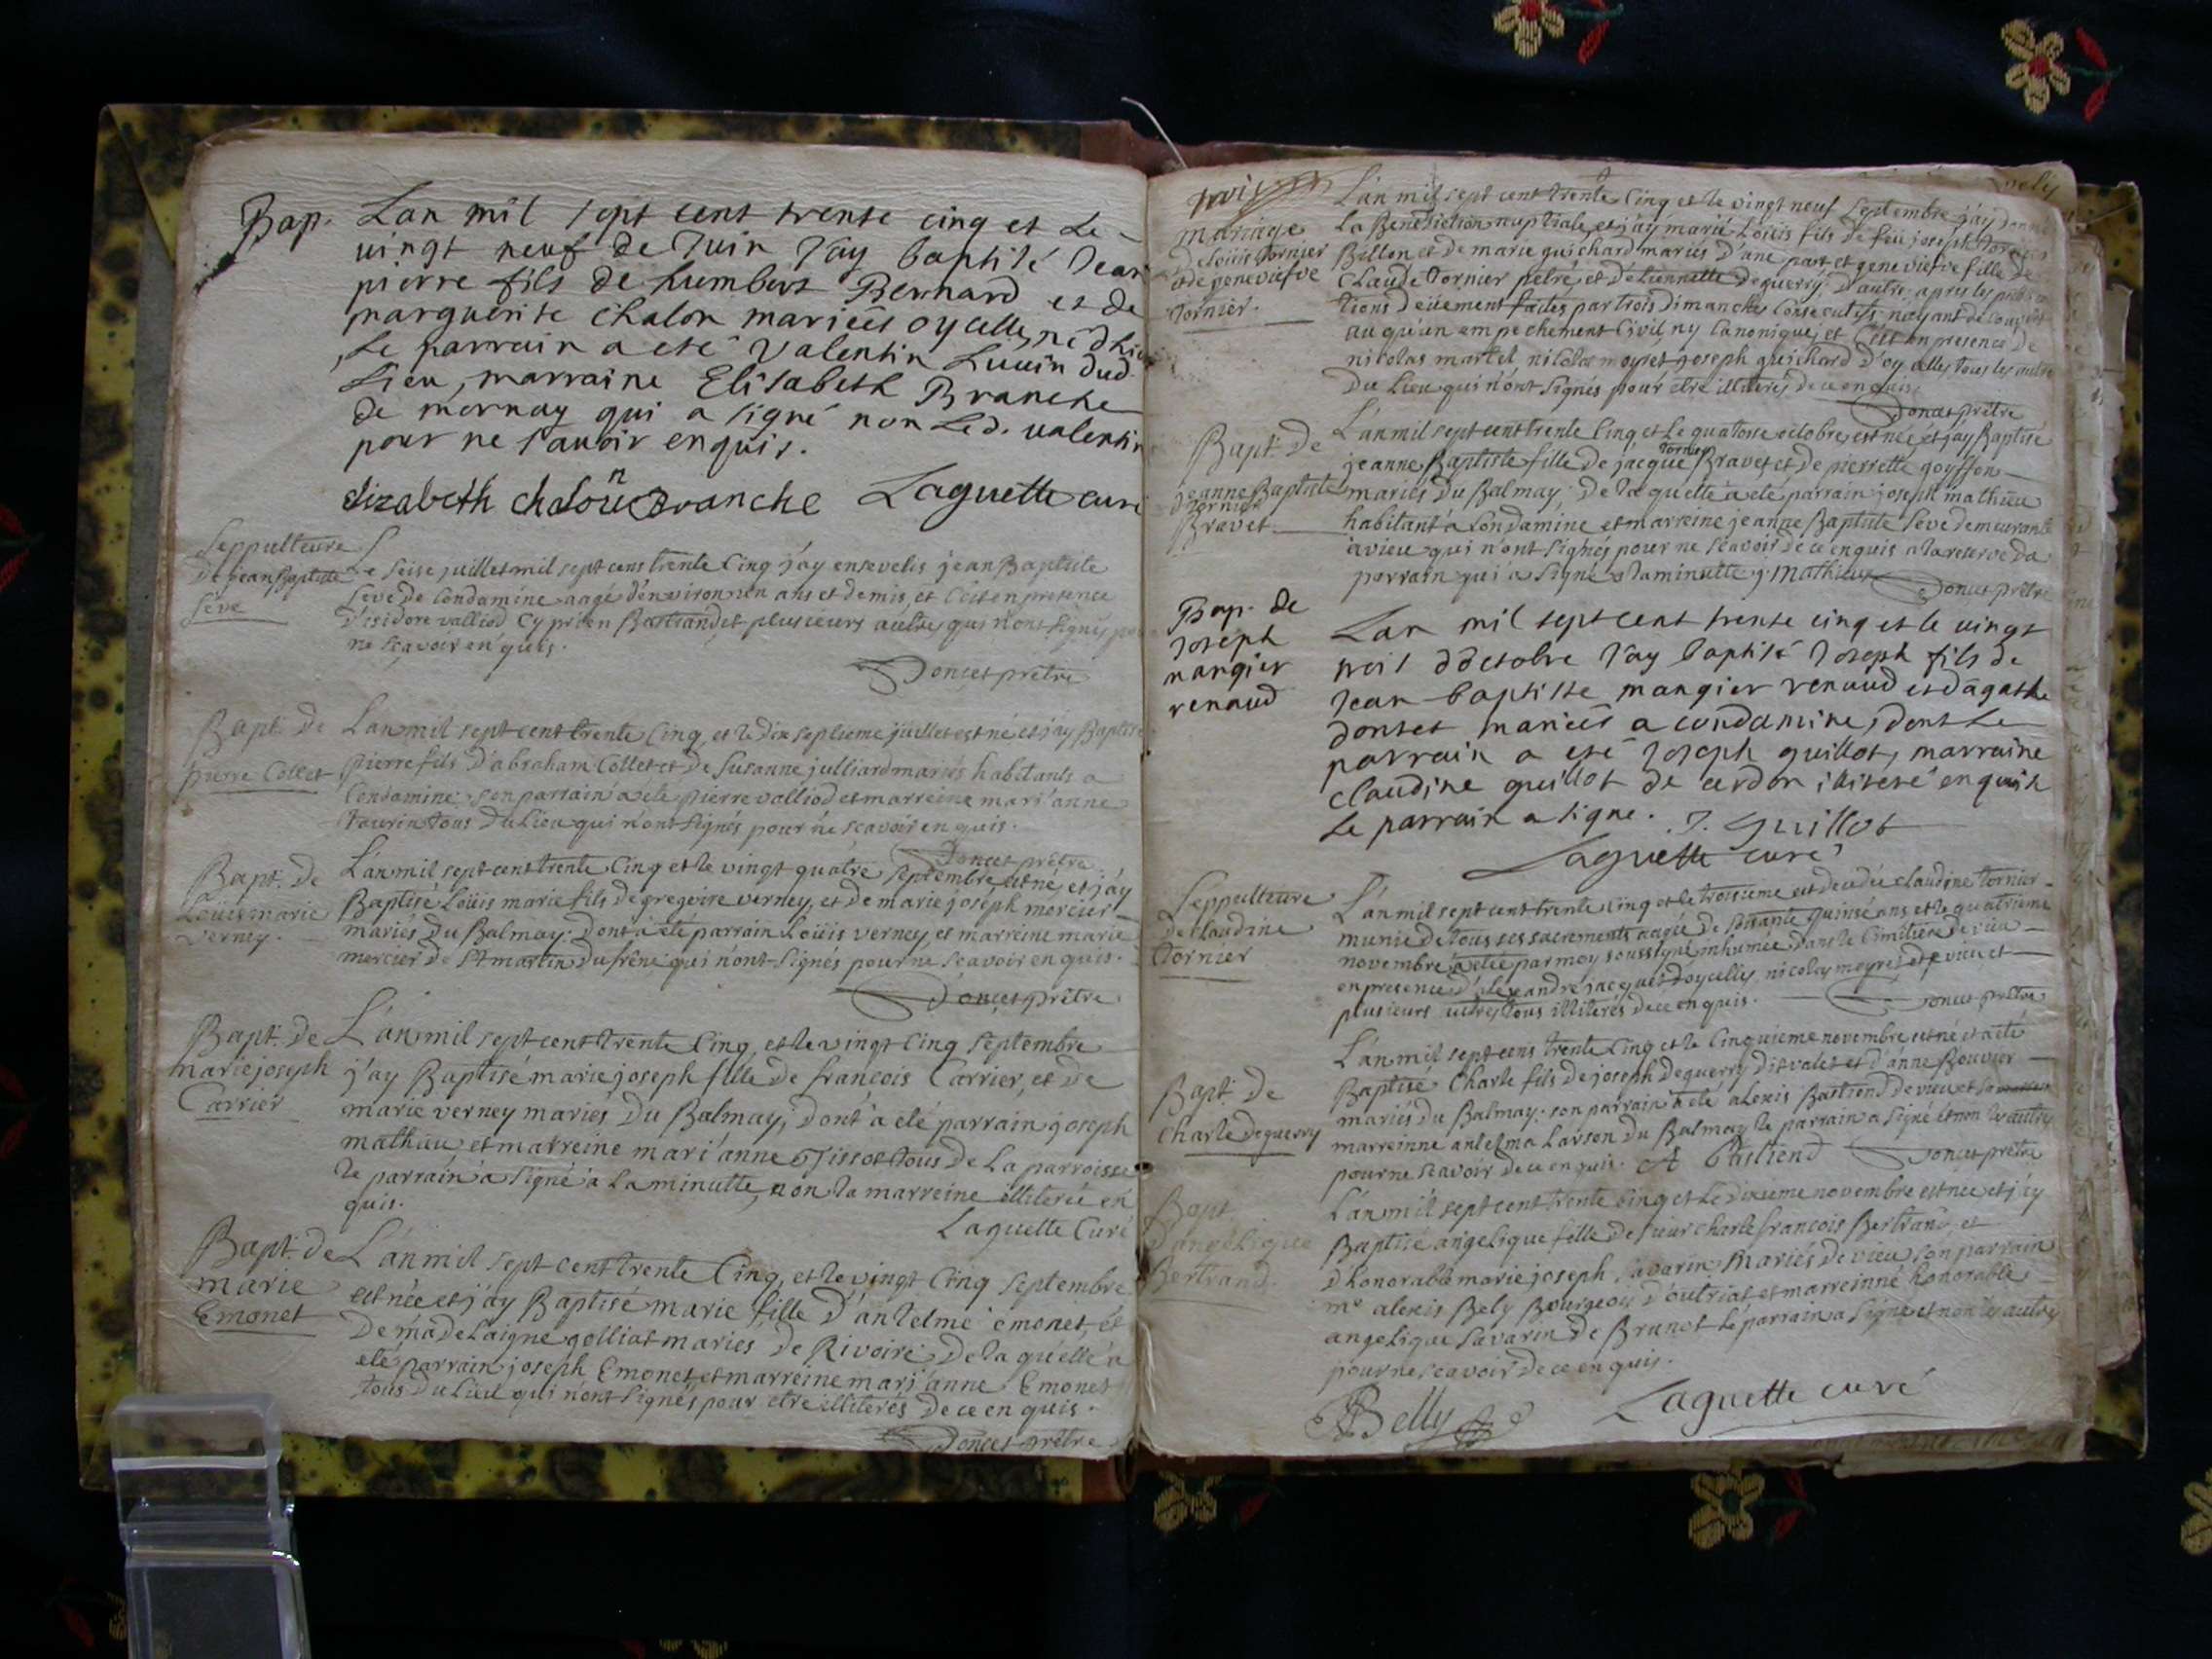 Bap. Lan mil sept cent trente cinq et le
vingt neuf de Juin J'ay baptisé Jean
pierre fils de humbert Bernard et de
marguerite Chalon mariéés oycelles, né dhier
le parrain a eté Valentin Luuin dud.
Lieu, marraine Elisabeth Branche
de mornay qui a signé non Led. valentin
pour ne sauoir enquis.
elizabeth chalon Branche Laguette curé
Seppulteure
de jean Baptiste
Seve
Le seise juillet mil sept cens trente Cinq j'ay ensevelis jean Baptiste
Seve de Condamine aagé d'environ un ans et demis, et c'est en presence
d'isidore valliod Cyprien Bastiand et plusieurs autres qui n'ont signés pour
ne sçavoir en quis.
Doncet prêtre
Bapt. de
pierre Collet
L'an mil sept cent trente Cinq, et le dix septieme juillet est né, et j'ay Baptisé
pierre fils d'abraham Collet et de Susanne julliard mariés habitants a
Condamine; son parrain a eté pierre valliod et marreine mari'anne
taurin tous du Lieu qui n'ont signés pour ne scavoir en quis.
Doncet prêtre
Bapt. de
Loüis marie
verney.
L'an mil sept cent trente Cinq et le vingt quatre septembre est né et j'ay
Baptisé Loüis marie fils de gregoire verney, et de marie joseph mercier
mariés du Balmay: dont a eté parrain Loüis verney, et marreine marie
mercier de St martin dufrêne qui n'ont signés pour ne scavoir en quis.
Doncet prêtre
Bapt. de
marie joseph
Carrier
L'an mil sept cent trente Cinq, et le vingt Cinq Septembre
j'ay Baptisé marie joseph fille de francois Carrier, et de
marie verney mariés du Balmay; dont a eté parrain joseph
mathieu et marreine mari'anne Tissot tous de La parroisse
le parrain a signé a La minutte, non la marreine illiterée en
quis.
Laguette Curé
Bapt. de
marie
Emonet
L'an mil sept cent trente Cinq, et le vingt Cinq Septembre
est née et j'ay Baptisé marie fille d'antelme emonet, et
de madelaigne golliat mariés de Rivoire; de la quelle a
eté parrain joseph Emonet et marreine mari'anne Emonet
tous du Lieu qui n'ont signés pour etre illiterés de ce en quis.
Doncet prêtre
mariage
de loüis tornier
et de genevieve
tornier.
L'an mil sept cent trente Cinq et le vingt neuf Septembre j'ay donné
La Benediction nuptiale, et j'ay marié Loüis fils de feu joseph tornier
Billon et de marie guichard mariés d'une part et genevieve fille de
Claude tornier pelré, et d'etiennette deguerry d'autre; apres les publica
tions deüement faites par trois dimanches Consecutifs, n'ayant decouvert
au qu'un empechement Civil ny Canonique, et C'est en presence de
nicolas martel nicolas moyret joseph guichard d'oycelles tous les autres
du Lieu qui n'ont signés pour etre illiterés de ce en quis.
Doncet prêtre
Bapt. de
jeanne Baptiste
tornier
Bravet.
L'an mil sept cent trente Cinq et Le quatorse octobre, est née et j'ay Baptisé
jeanne Baptiste fille de jacque tornier Bravet et de pierrette goyffon
mariés du Balmay: de la quelle a eté parrain joseph mathieu
habitant a Condamine et marreine jeanne Baptiste Seve demeurante
a vieu qui n'ont signés pour ne scavoir de ce enquis a la reserve du
parrain qui a signé a la minutte j. mathieu
Doncet prêtre
Bap. de
Joseph
mangier
renaud
Lan mil sept cent trente cinq et le uingt
trois d'octobre J'ay baptisé Joseph fils de
Jean baptiste mangier renaud et dagathe
donset mariéés a condamine, dont le
parrain a eté Joseph guillot, marraine
claudine guillot de cerdon illiteré enquise
le parrain a signe. J. Guillot
Laguette curé
Seppulteure
de Claudine
tornier
L'an mil sept cent trente Cinq et le troisieme est decedée claudine tornier
munie de tous ses sacrements aagée de soisante quinsé ans et le quatrieme
novembre a eté par moy soussigné inhumée dans le Cimitiere de vieu
en presence d'alexandre jacquet d'oycelles, nicolas moyret de vieu et
plusieurs autres tous illiterés de ce en quis.
Doncet prêtre
Bapt. de
Charle deguerry
L'an mil sept cens trente Cinq et le Cinquieme novembre est né et a eté
Baptisé Charle fils de joseph deguerry dit valet et d'anne Bouvier
mariés du Balmay: son parrain a eté alexis Bastiend de vieu et sa
marreinne antelma Larson du Balmay le parrain a signé et non les autres
pour ne scavoir de ce en quis. A Bastiend Doncet prêtre
Bapt.
d'angelique
Bertrand.
L'an mil sept cent trente Cinq et Le dixieme novembre est née et j'ay
Baptisé angelique fille de sieur charle francois Bertrand, et
d'honorable marie joseph Savarin mariés de vieu, son parrain
me alexis Bely Bourgeois d'outriat et marreinne honorable
angelique Savarin de Brunet le parrain a signé et non les autres
pour ne scavoir de ce en quis.
Belly Laguette curé